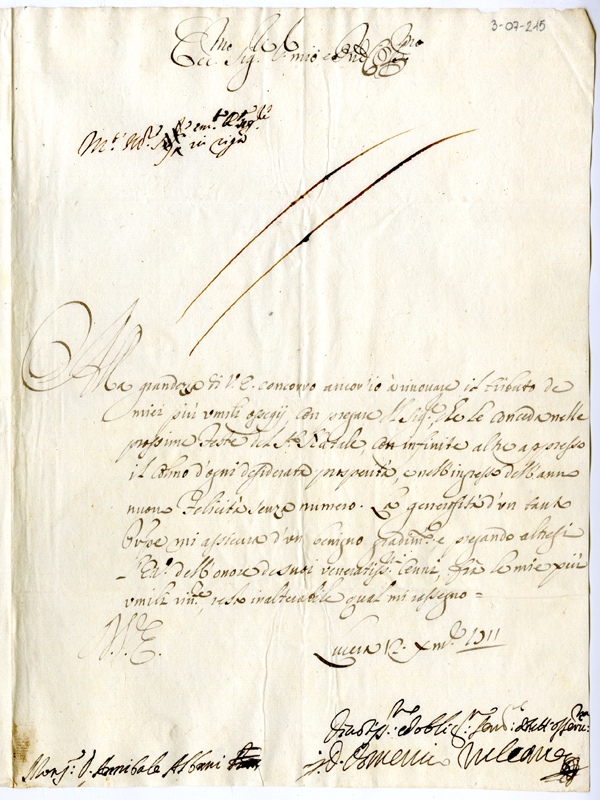 3-07-215
Ecc.mo Sig.r mio e Pad.
Alla grandezza di V. E. concorro ancor io à rinovare il tributo de
miei più umili ossequij con pregare il Sig.re che le conceda nelle
prossime Feste del S.to Natale, con infinite altre appresso
il colmo d'ogni desiderata prosperità, e nell'ingresso dell'anno
nuovo Felicità senza numero. La generosità d'un tanto
Eroe mi assicura d'un benigno gradim.to e pregando altresì
V.E. dell'onore de suoi veneratiss.mi cenni, frà le mie più
umili resto inalterabile qual mi rassegno =
V. E.
Lucera 12. Xm.re 1711
Devotiss.mo et obligatiss.mo
D. Domenico
Mons.r D. Annibale Albani